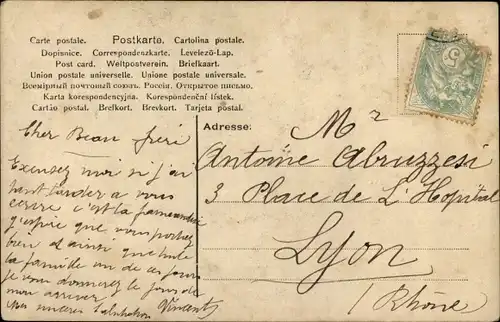 Carte postale. Postkarte. Cartolina postale.
Dopisnice. Correspondenzkarte. Levelező-Lap.
Post card. Weltpostverein. Briefkaart.
Union postale universelle. Unione postale universale.
Всемірный почтовый союзъ. Россія. Открытое письмо.
Karta korespondencyjna. Korespondenční lístek.
Cartão postal. Brefkort. Brevkort. Tarjeta postal.
Adresse:
Mr
Antoine Abruzzesi
3 Place de L'Hopital
Lyon
(Rhône)
Cher Beau freri
Excusez moi si j'ai
tant tarder a vous
ecrire c'est la
j'espere que vous portez
bien et ainsi que toute
la famille un de ces jours
je vous donnerez le jour de
mon arrivez
Mes sinceres Salutation Vincent